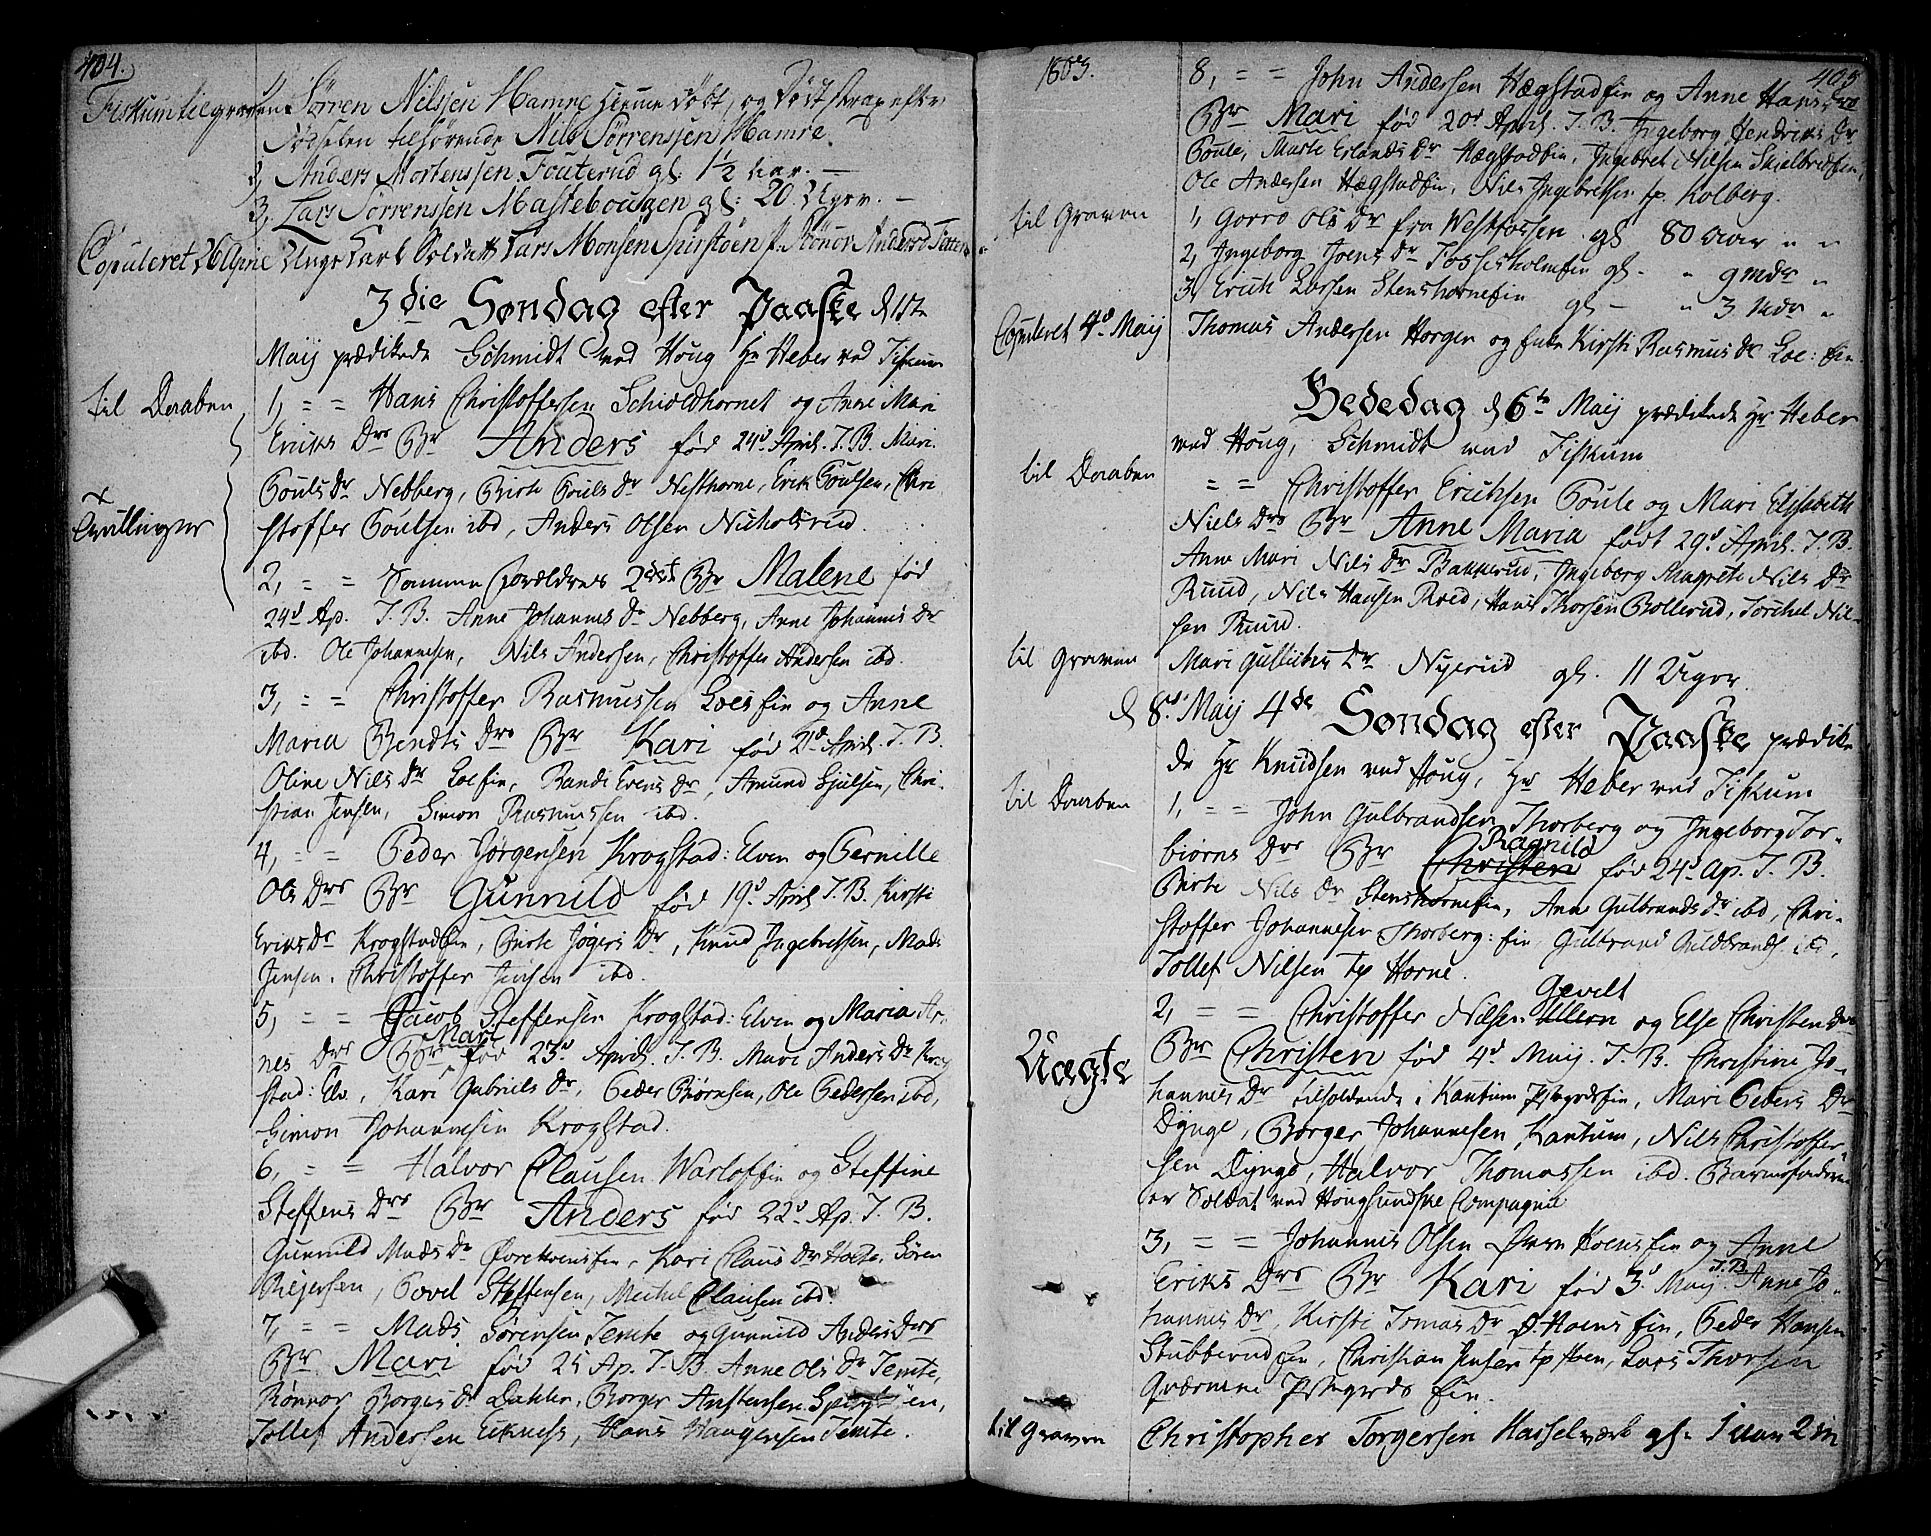 404.
Fiskum til graven. 1, Sørren Nilssen Hamre hiemme døbt, og Død strax efter
Fødselen tilhørende Nils Sørrenssen Hamre.
2, Anders Mortenssen Fouterud gl: 1½ aar. —
3, Lars Sørrenssen Mastebougen gl: 20 Ugr. —
Copuleret 26 Aprie Unge Karl Soldatt Lars Monsen P. Rønov Andersd
3die Søndag efter Paaske d 1ste
Maij prædikede Schmidt ved Houg Hr Heber ved Fiskum
til Daaben 1, = = Hans Christoffersen Schioldhornet og Anne Mari
Eriks Drs Br Anders fød 24d April. T. B. Mari
Pouls Dr Nebberg, Birte Pouls Dr Nesthorne, Erik Poulsen, Chri
x
Tvillinger
stoffer Poulsen ibd, Anders Olsen
2, = = Samme Forældres 2det Br Malene fød
24d Ap. T. B. Anne Johannes Dr Nebberg, Anne Johannis Dr
ibd. Ole Johannesen, Nils Andersen, Christoffer Andersen ibd.
3, = = Christoffer Rasmussen Loesfin og Anne
Maria Bendts Drs Br Kari fød April. T. B.
Oline Nils Dr Loefin, Randi Evens Dr, Amund Gjulsen, Chri-
stian Jensen, Simon Rasmussen ibd.
4, = = Peder Jørgensen Krogstad: Elven og Pernille
Ols Drs Br Gunnild fød 19d April T. B. Kirsti
Eriks Dr Krogstadfin, Birte Dr, Knud Ingebretsen, Mads
Jensen, Christoffer Jensen ibd.
5, = = Jacob Steffensen Krogstad: Elven og Maria Ar-
Mari
nes Drs Br fød 23d April. T. B. Mari Anders Dr Krog
stad: Elv., Kari Gabriels Dr, Peder Biørnsen, Ole Pedersen ibd,
Simon Johannesen Krogstad.
6, = = Halvor Clausen Warloffin og Steffine
Steffens Drs Br Anders fød 22d Ap. T. B.
Gunnild Mads Dr, Kari Claus Dr Hoete, Søren
Reijersen, Povel Steffensen, Michel Clausen ibd.
7, = = Mads Sørensen Temte og Gunnild Anders Drs
Br Mari fød 25 Ap. T. B. Anne Ols Dr Temte,
Rønnov Borges Dr Dahler, Borger Anstensen
Tollef Andersen Eikness, Hans Haagensen Temte.
1803. 405
8, = = John Andersen Hægstadfin og Anne Hans Drs
Br Mari fød 20d April. T. B. Ingeborg Hendriks Dr
Poule, Marte Erlands Dr Hægstadfin, Ingebret Nilsen
Ole Andersen Hægstadfin, Nils Ingebretsen tp Kolberg.
til Graven 1, Gorro Ols Dr fra Westfossen gl 80 aar " "
2, Ingeborg Joens Dr Fossesholmfin gl. " 9 mdr "
3, Erich Larsen Stenshornefin gl — " 3 Mdr "
Copuleret 4d Maij Thomas Andersen Horgen og Enke Kirsti Rasmus Dr Loe: fin
Bededag d 6te Maij prædikede Hr Heber
ved Houg, Schmidt ved Fiskum
til Daaben = = Christoffer Erichsen Poule og Mari Elisabeth
Niels Drs Br Anne Maria født 29d April. T. B.
Anne Mari Nils Dr Bakkerud, Ingeborg Magrete Nils Dr
Ruud, Nils Hansen Røed, Hans Thorsen Bollerud, Torchel Nil-
sen Ruud.
til graven Mari Gullichs Dr Nyerud gl. 11 Uger.
d 8d Maij 4de Søndag efter Paaske prædike
de Hr Knudsen ved Houg, Hr Heber ved Fiskum
til Daaben 1, = = John Gulbrandsen Thorberg og Ingeborg Tor-
Ragnild
biørns Drs Br Christen fød 24d Ap. T. B.
Birte Nils Dr Stenshornefin, Anne Gulbrands Dr ibd, Chri-
stoffer Johannesen Thorberg: fin, Gulbrand Guldbrands. ibd,
Tollef Nilsen tp Horne.
Gevelt
2, = = Christoffer Nilsen Ullern og Else Christen Drs
Uægte
Br Christen fød 4d Maij. T. B. Christine Jo-
hannes Dr tilholdende i Kantum Præstgrdsfin, Mari Peders Dr
Dynge, Børger Johannesen Kantum, Nils Christoffer-
sen Dynge, Halvor Thomassen ibd. Barnefaderen
er Soldat ved Hougsundske Compagnie
3, = = Johannes Olsen Øvern Hoensfin og Anne
Eriks Drs Br Kari fød 3d Maij T. B. Anne Jo-
hannes Dr, Kirsti Tomas Dr Ø. Hoens fin, Peder Hansen
Stubberudfin, Christian Jensen tp Hoen, Lars Thorsen
Qværnene Præstgrds fin.
til graven Christopher Torgersen Hasselværk gl. 1 aar 2 m